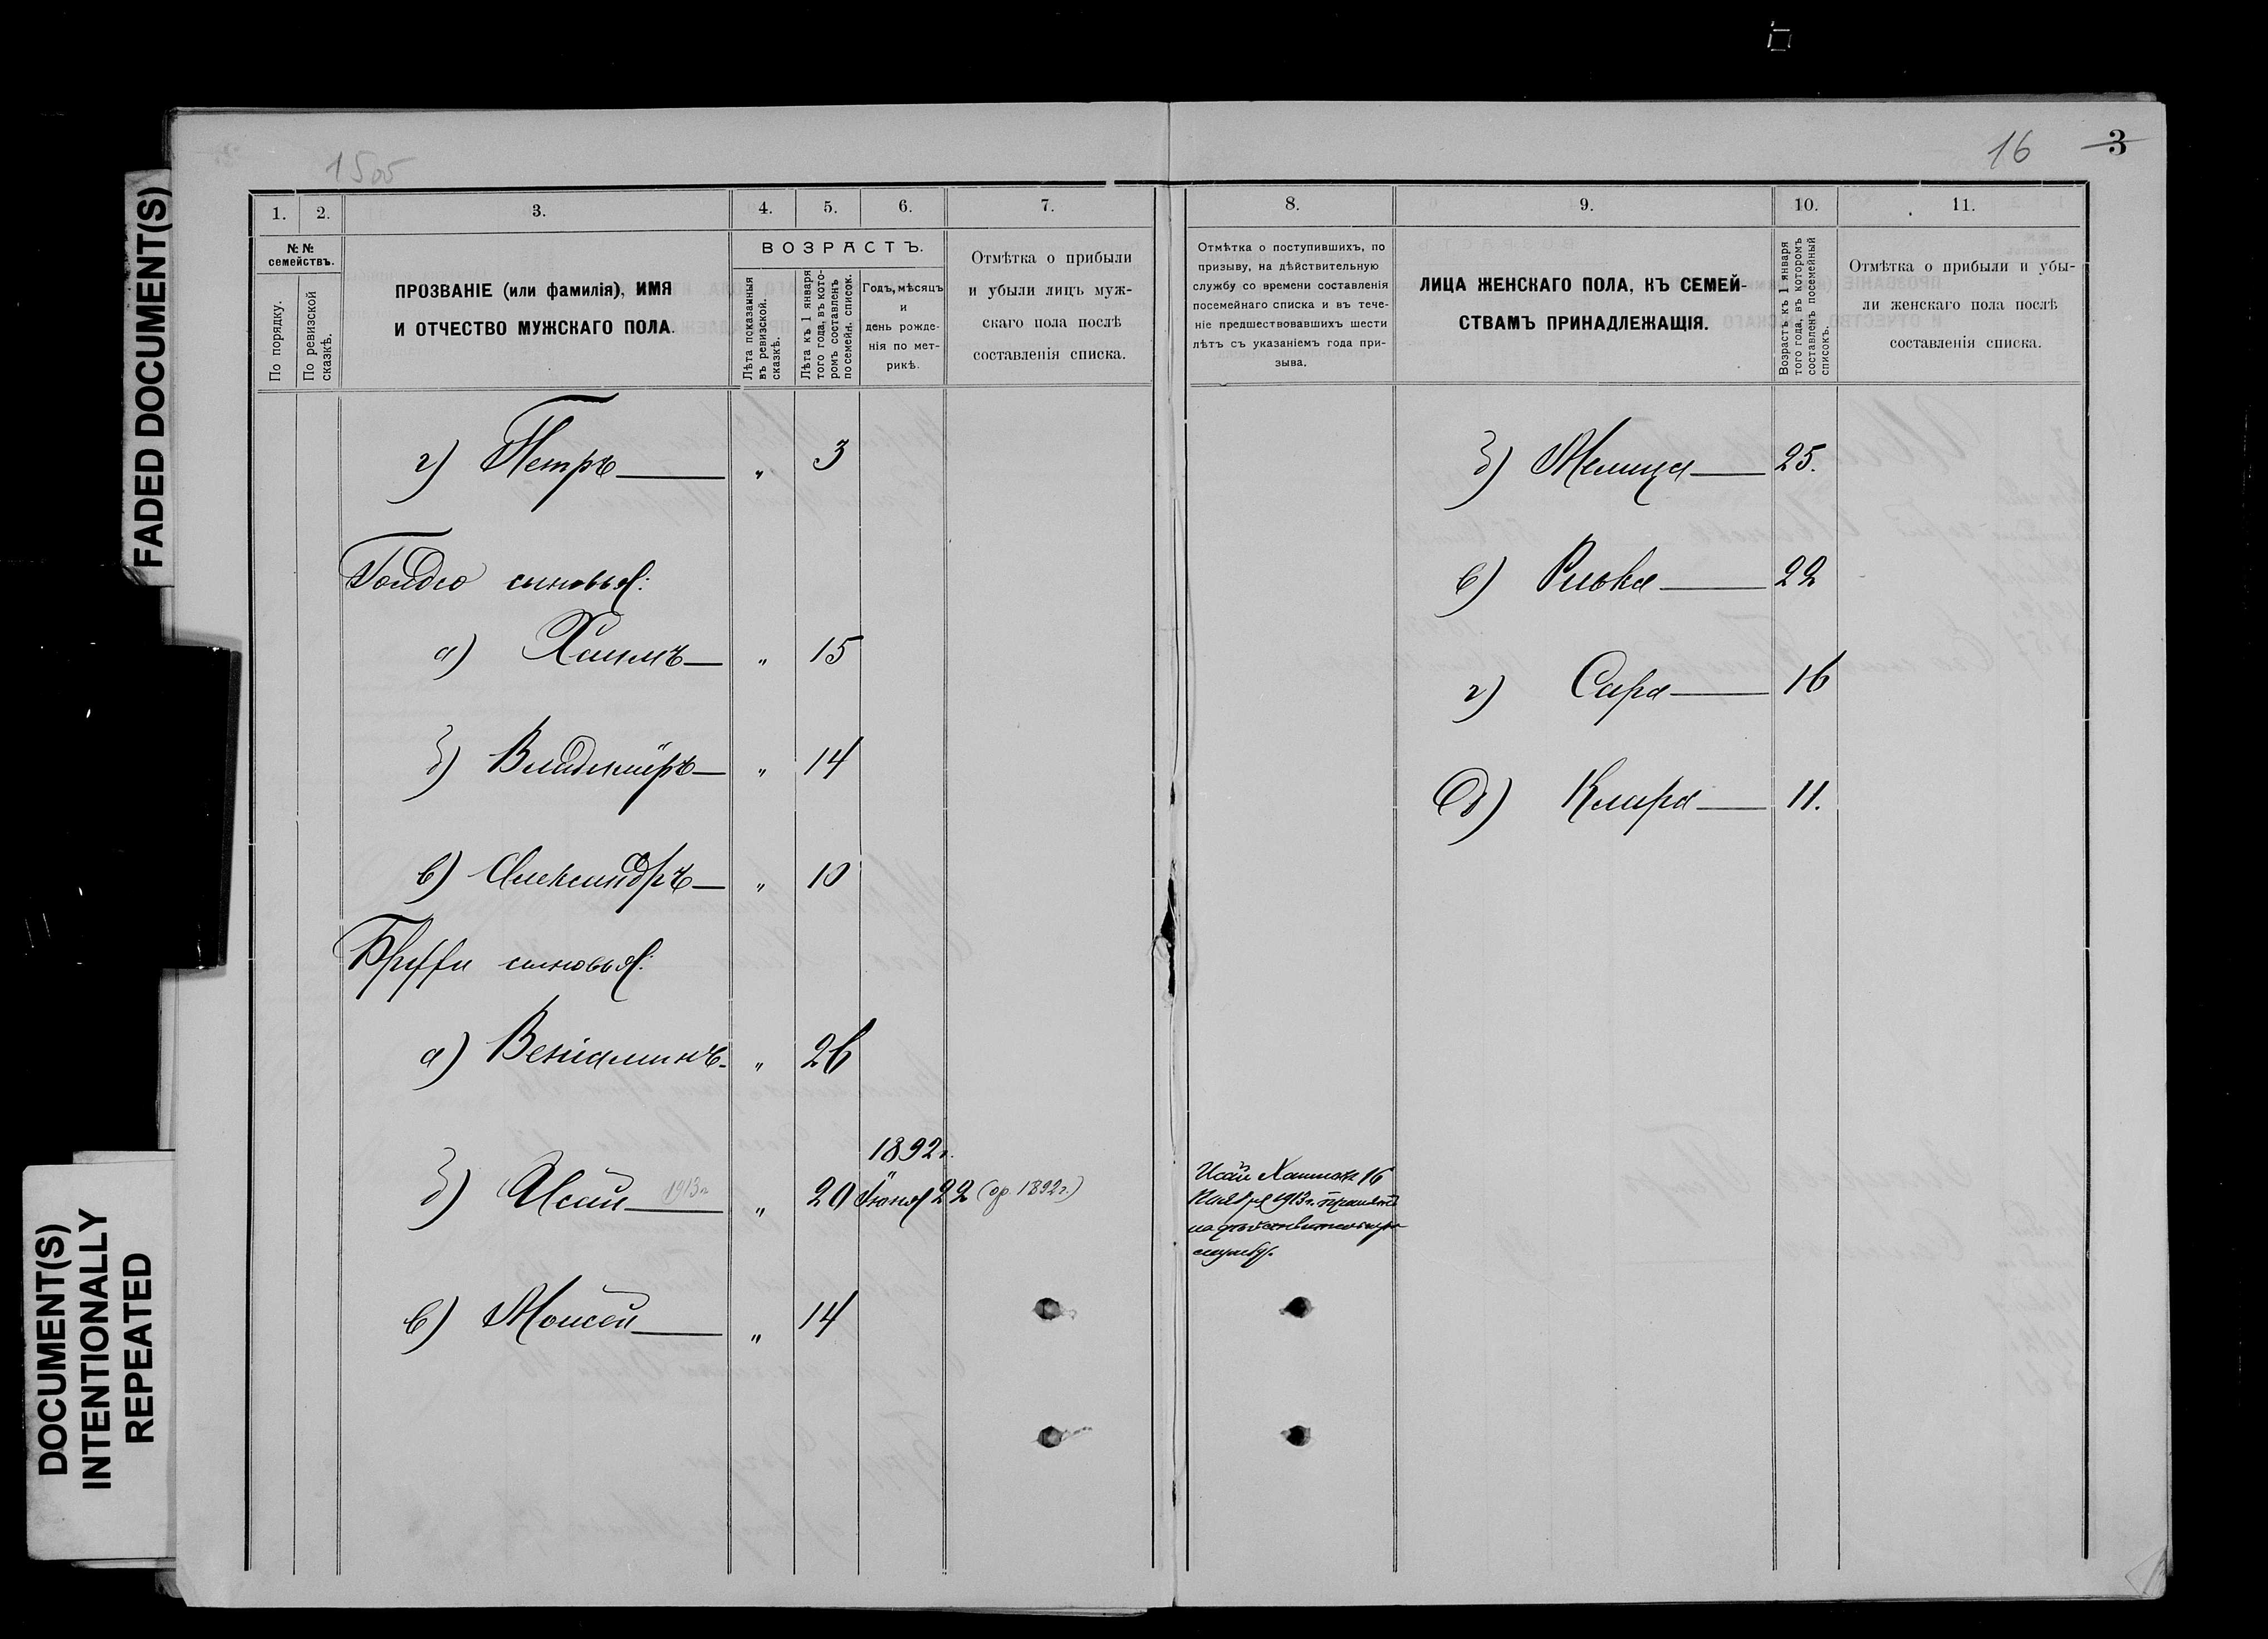 FADED DOCUMENT(S)
DOCUMENT(S)
INTENTIONALLY
REPEATED
1505
16 3
1. 2. 3. 4. 5. 6. 7.
№ №
семействъ.
По порядку.
По ревизской
сказкѣ.
ПРОЗВАНІЕ (или фамилія), ИМЯ
И ОТЧЕСТВО МУЖСКАГО ПОЛА.
ВОЗРАСТЪ.
Лѣта показанныя
въ ревизской.
сказкѣ.
Лѣта къ 1 января
того года, въ кото-
ромъ составленъ
по семейн. список.
Годъ, мѣсяцъ
и
день рожде-
нія по мет-
рикѣ.
Отмѣтка о прибыли
и убыли лицъ муж-
скаго пола послѣ
составленія списка.
г) Петръ " 3
сыновья:
а) Хаимъ " 15
б) Владиміръ " 14
в) Александръ " 10
сыновья:
а) Веніаминъ " 26
1892г.
б) Исай 1913г " 20 Іюня 22 (ор. 1892г.)
в) Моисей " 14
8. 9. 10. 11.
Отмѣтка о поступившихъ, по
призыву, на дѣйствительную
службу со времени составленія
посемейнаго списка и въ тече-
ніе предшествовавшихъ шести
лѣтъ съ указаніемъ года при-
зыва.
ЛИЦА ЖЕНСКАГО ПОЛА, КЪ СЕМЕЙ-
СТВАМЪ ПРИНАДЛЕЖАЩІЯ.
Возрастъ къ 1 января
того года, въ которомъ
составленъ посемейный
списокъ.
Отмѣтка о прибыли и убы-
ли женскаго пола послѣ
составленія списка.
б) Мелица 25.
в) Ривка 22
г) Сара 16
д) Клара 11.
Исай 16
Ноября 1913г. принятъ
на дѣйствительную
службу.